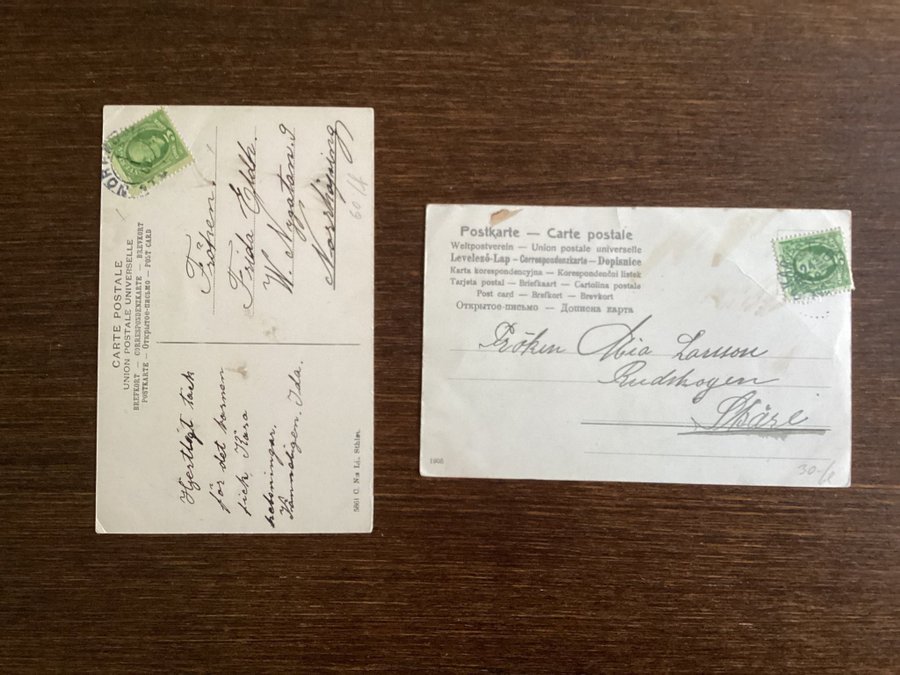 CARTE POSTALE
UNION POSTALE UNIVERSELLE
BREFKORT — CORRESPONDENZKARTE — BREVKORT
POSTKARTE — Открытое-письмо — POST CARD
Fröken
Frida
W. Nygatan. 9
Norrköping
60/
Hjertligt tack
för det kornen
fick, Kära
helsningar.
Vänneligen. Ida.
5661 C. N:s Lj. Sthlm.
Postkarte — Carte postale
Weltpostverein — Union postale universelle
Levelező-Lap — Correspondenzkarte — Dopisnice
Karta korespondencyjna — Korespondenční lístek
Tarjeta postal — Briefkaart — Cartolina postale
Post card — Brefkort — Brevkort
Открытое-письмо — Дописна карта
Fröken Mia Larsson
Rudskogen
Skåre
1905
30-/